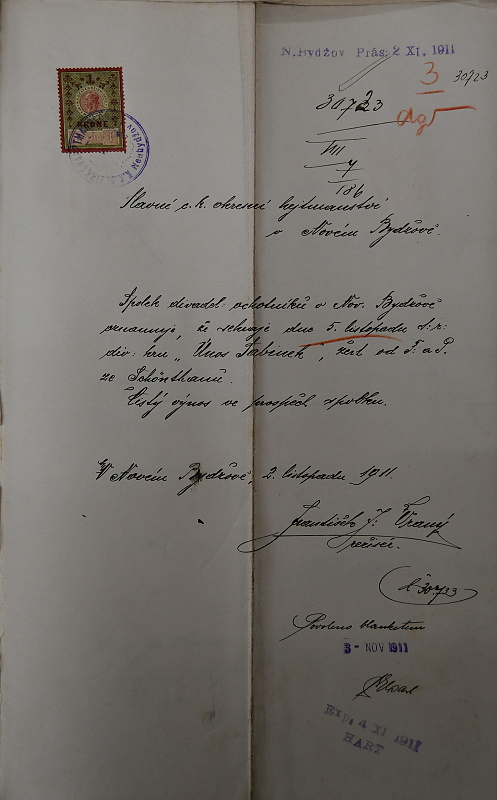 N. Bydžov Präs: 2 XI. 1911
3
30723
30723
VII
7
186
1
KRONE
Slavné c. k. okresní hejtmanství
v Novém Bydžově.
Spolek divadel. ochotníků v Nov. Bydžově
oznamuje, že sehraje dne 5. listopadu t. r.
div. hru „Únos Sabinek", žert od F. a P.
ze Schönthanů.
Čistý výnos ve prospěch spolku.
V Novém Bydžově, 2. listopadu 1911.
František J. Vraný
režisér.
Povoleno blanketem
3 - NOV 1911
Exp. 4 XI 1911
HART